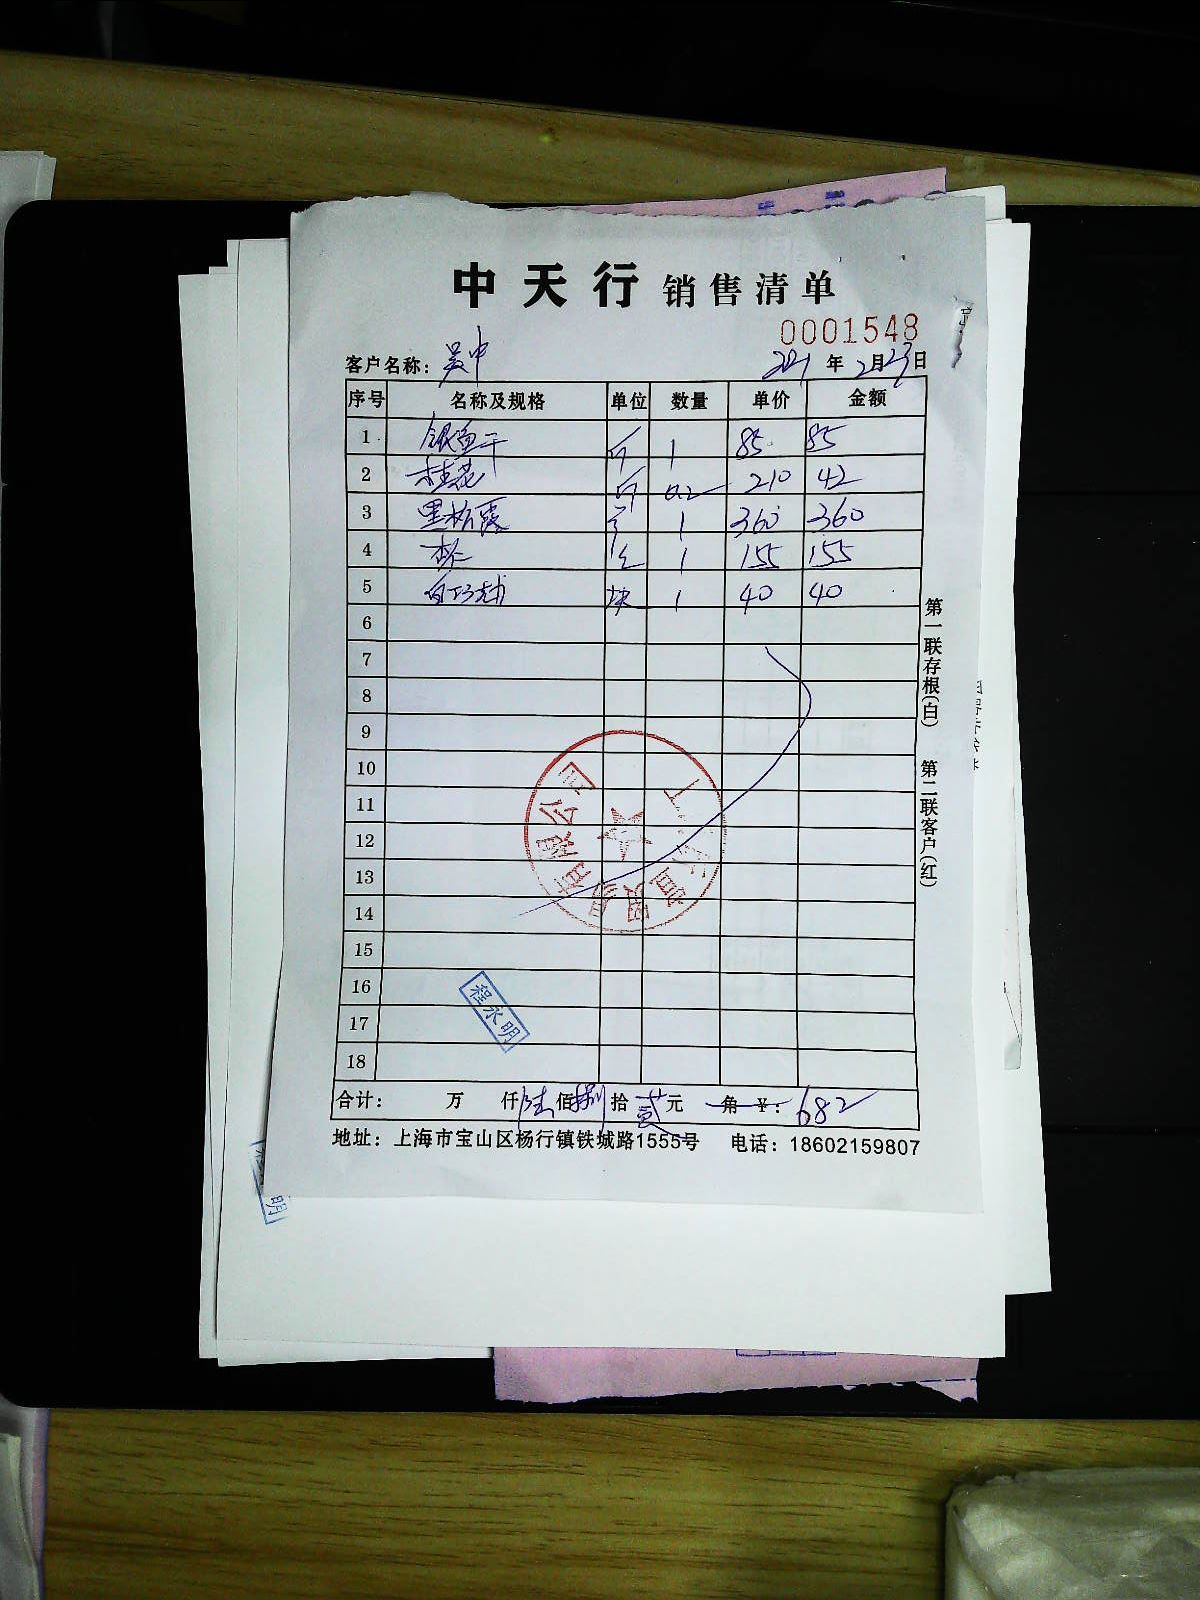 中天行 销售清单
0001548
客户名称：吴中 2021年2月23日
序号 名称及规格 单位 数量 单价 金额
1 银鱼干 斤 1 85 85
2 桂花 斤 0.2 210 42
3 黑松露 1 360 360
4 杏仁 1 155 155
5 白巧克力 块 1 40 40
6
7
8
9
10
11
12
13
14
15
16
17
18
贸易有限公司
程永明
合计： 万 仟陆佰捌拾贰元 角 ¥：682
地址：上海市宝山区杨行镇铁城路1555号 电话：18602159807
第一联存根（白） 第二联客户（红）
明